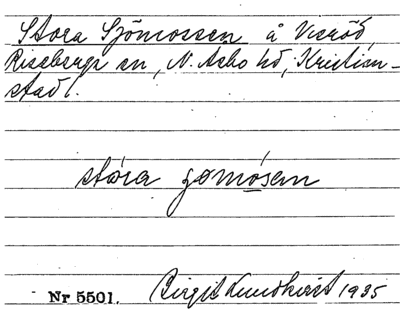 Stora Sjömossen å Vixröd,
Riseberga sn, N. Åsbo hd, Kristian-
stad l.
stóra jømósen
Nr 5501. Birgit Lundkvist 1935